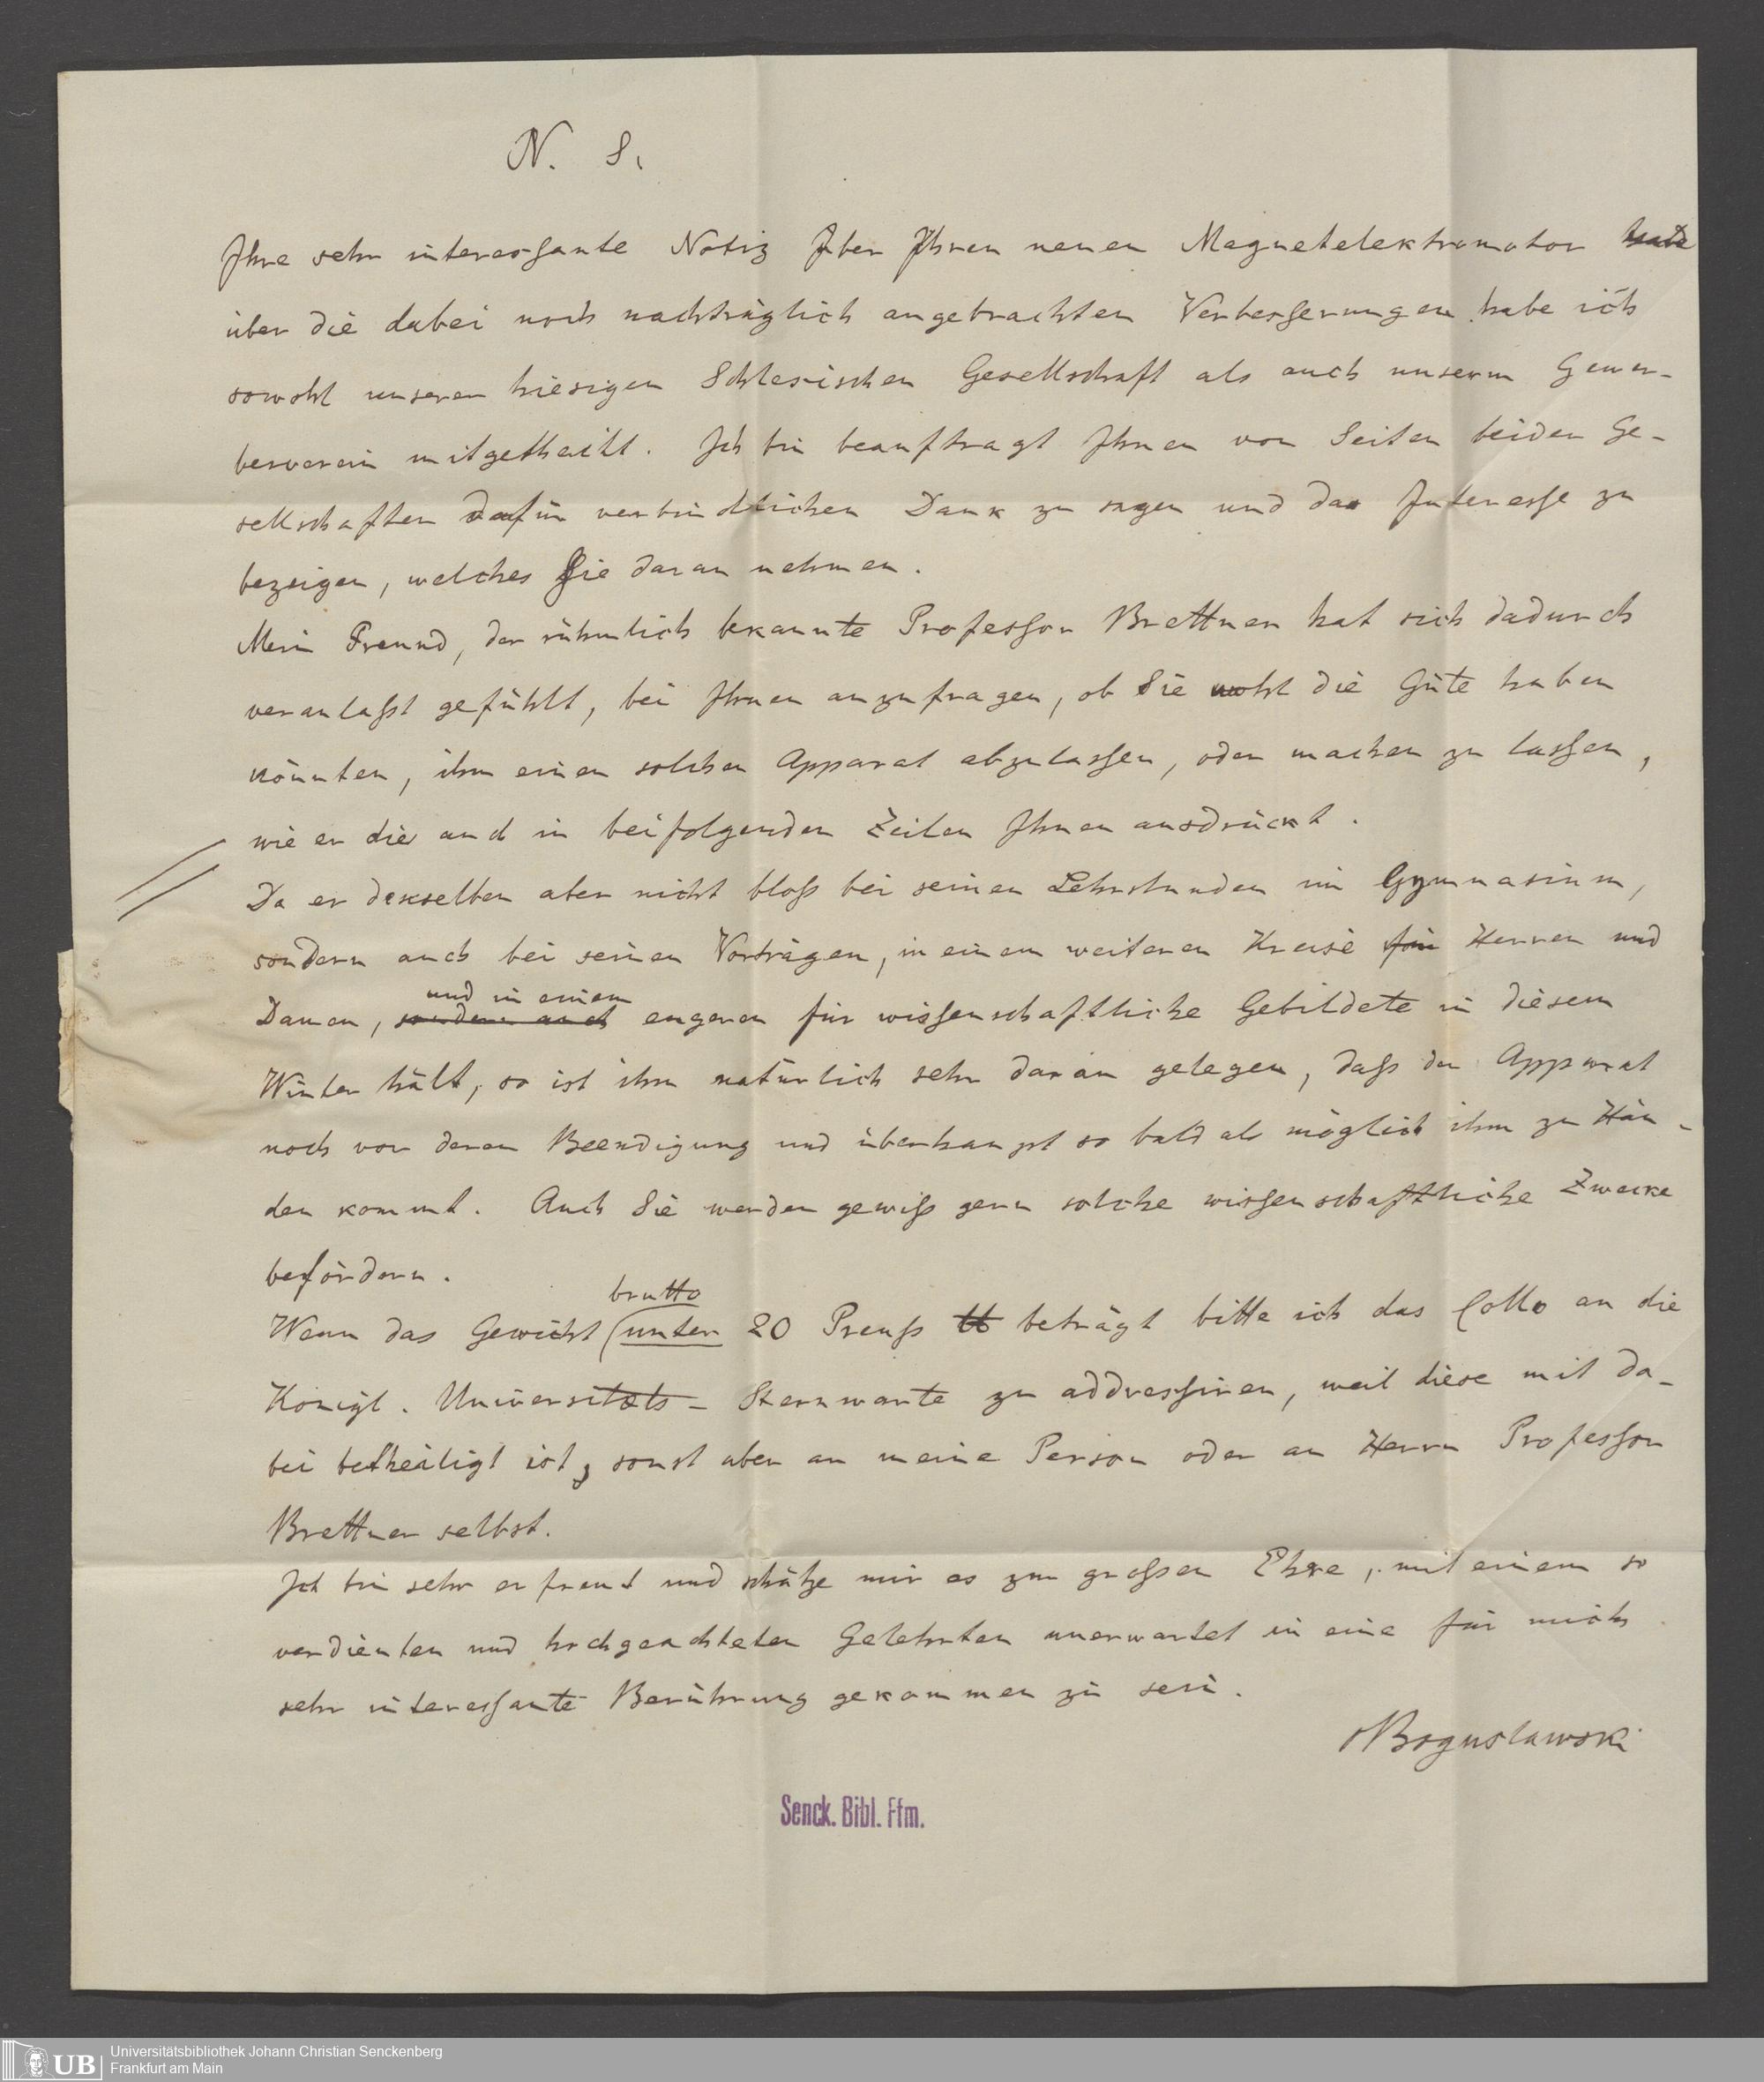 N. S.
Ihre sehr interessante Notiz über Ihren neuen Magnetelektromotor
über die dabei noch nachträglich angebrachten Verbesserungen habe ich
sowohl unserer hiesigen Schlesischen Gesellschaft als auch unserm Gewer-
beverein mitgetheilt. Ich bin beauftragt Ihnen von Seiten beider Ge-
sellschaften dafür verbindlichen Dank zu sagen und das Interesse zu
bezeigen, welches Sie daran nehmen.
Mein Freund, der rühmlich bekannte Professor Brettner hat sich dadurch
veranlaßt gefühlt, bei Ihnen anzufragen, ob Sie wohl die Güte haben
könnten, ihm einen solchen Apparat abzulassen, oder machen zu lassen,
wie er die in beifolgenden Zeilen Ihnen ausdrückt.
Da er denselben aber nicht bloß bei seinen Lehrstunden im Gymnasium,
sondern auch bei seinen Vorträgen, in einem weiteren Kreise für Herren und
und in einem
Damen, sondern auch engeren für wissenschaftliche Gebildete in diesem
Winter hält, so ist ihm natürlich sehr daran gelegen, daß der Apparat
noch vor deren Beendigung und überhaupt so bald als möglich ihm zu Hän-
den kommt. Auch Sie werden gewiß gern solche wissenschaftliche Zwecke
befördern.
brutto
Wenn das Gewicht (unter 20 Preuß ℔ beträgt bitte ich das Collo an die
Königl. Universitæts- Sternwarte zu addressiren, weil diese mit da-
bei betheiligt ist, sonst aber an meine Person oder an Herrn Professor
Brettner selbst.
Ich bin sehr erfreut und schätze mir es zur großen Ehre, mit einem so
verdienten und hochgeachteten Gelehrten unerwartet in eine für mich
sehr interessante Berührung gekommen zu sein.
Boguslawski
Senck. Bibl. Ffm.
UB
Universitätsbibliothek Johann Christian Senckenberg
Frankfurt am Main